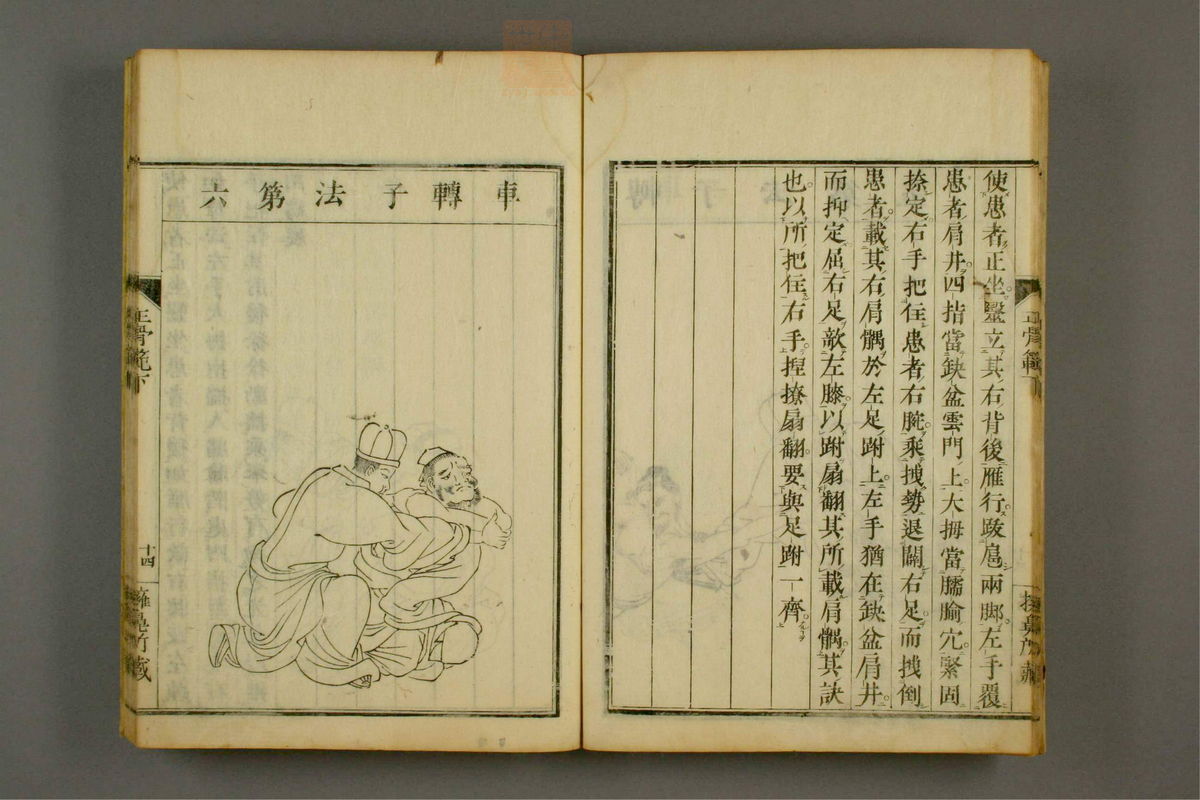 使患者正坐鹥立其右背後雁行跋扈兩脚左手覆
患者肩井四指當缺盆雲門上大拇當臑腧穴緊固
捺定右手把住患者右腕乘拽勢退闢右足而拽倒
患者載其右肩髃於左足跗上左手猶在缺盆肩井
而抑定屈右足敵左膝以跗扇翻其所載肩髃其訣
也以所把住右手捏撩扇翻要與足跗一齊
正骨範下
車轉子法第六
正骨範下
十四